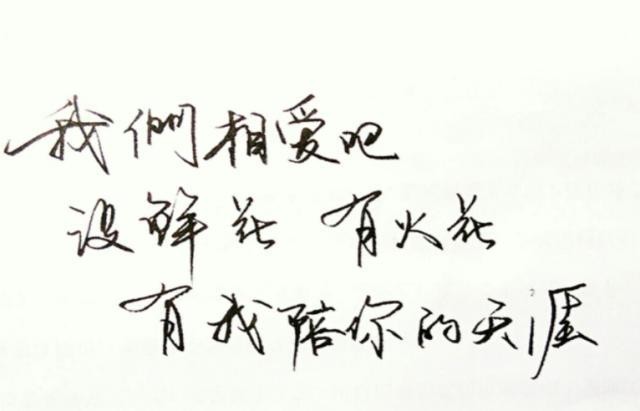 我們相爱吧
没鲜花 有火花
有我陪你的天涯